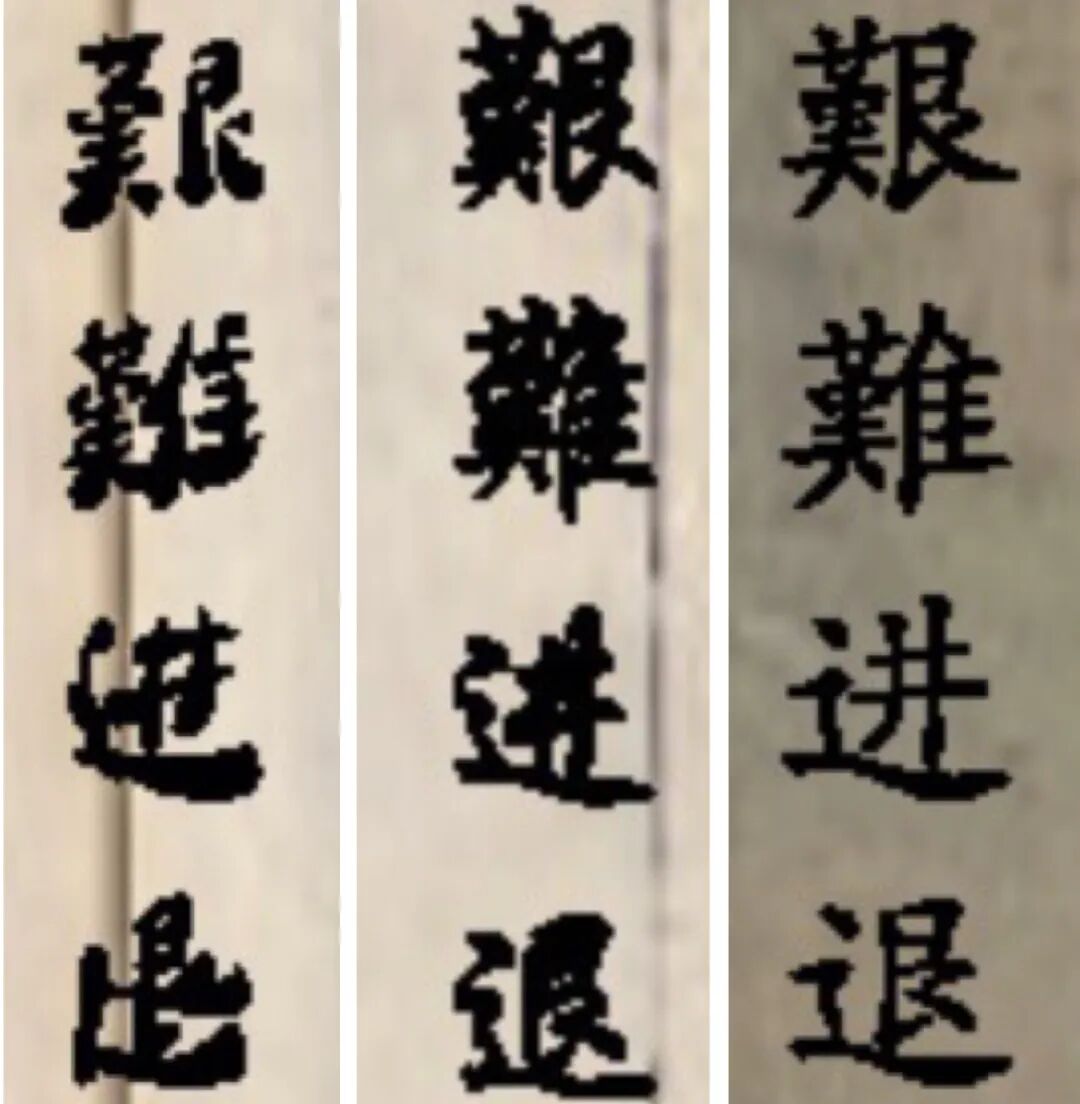 艱難进退
艱難进退
艱難进退